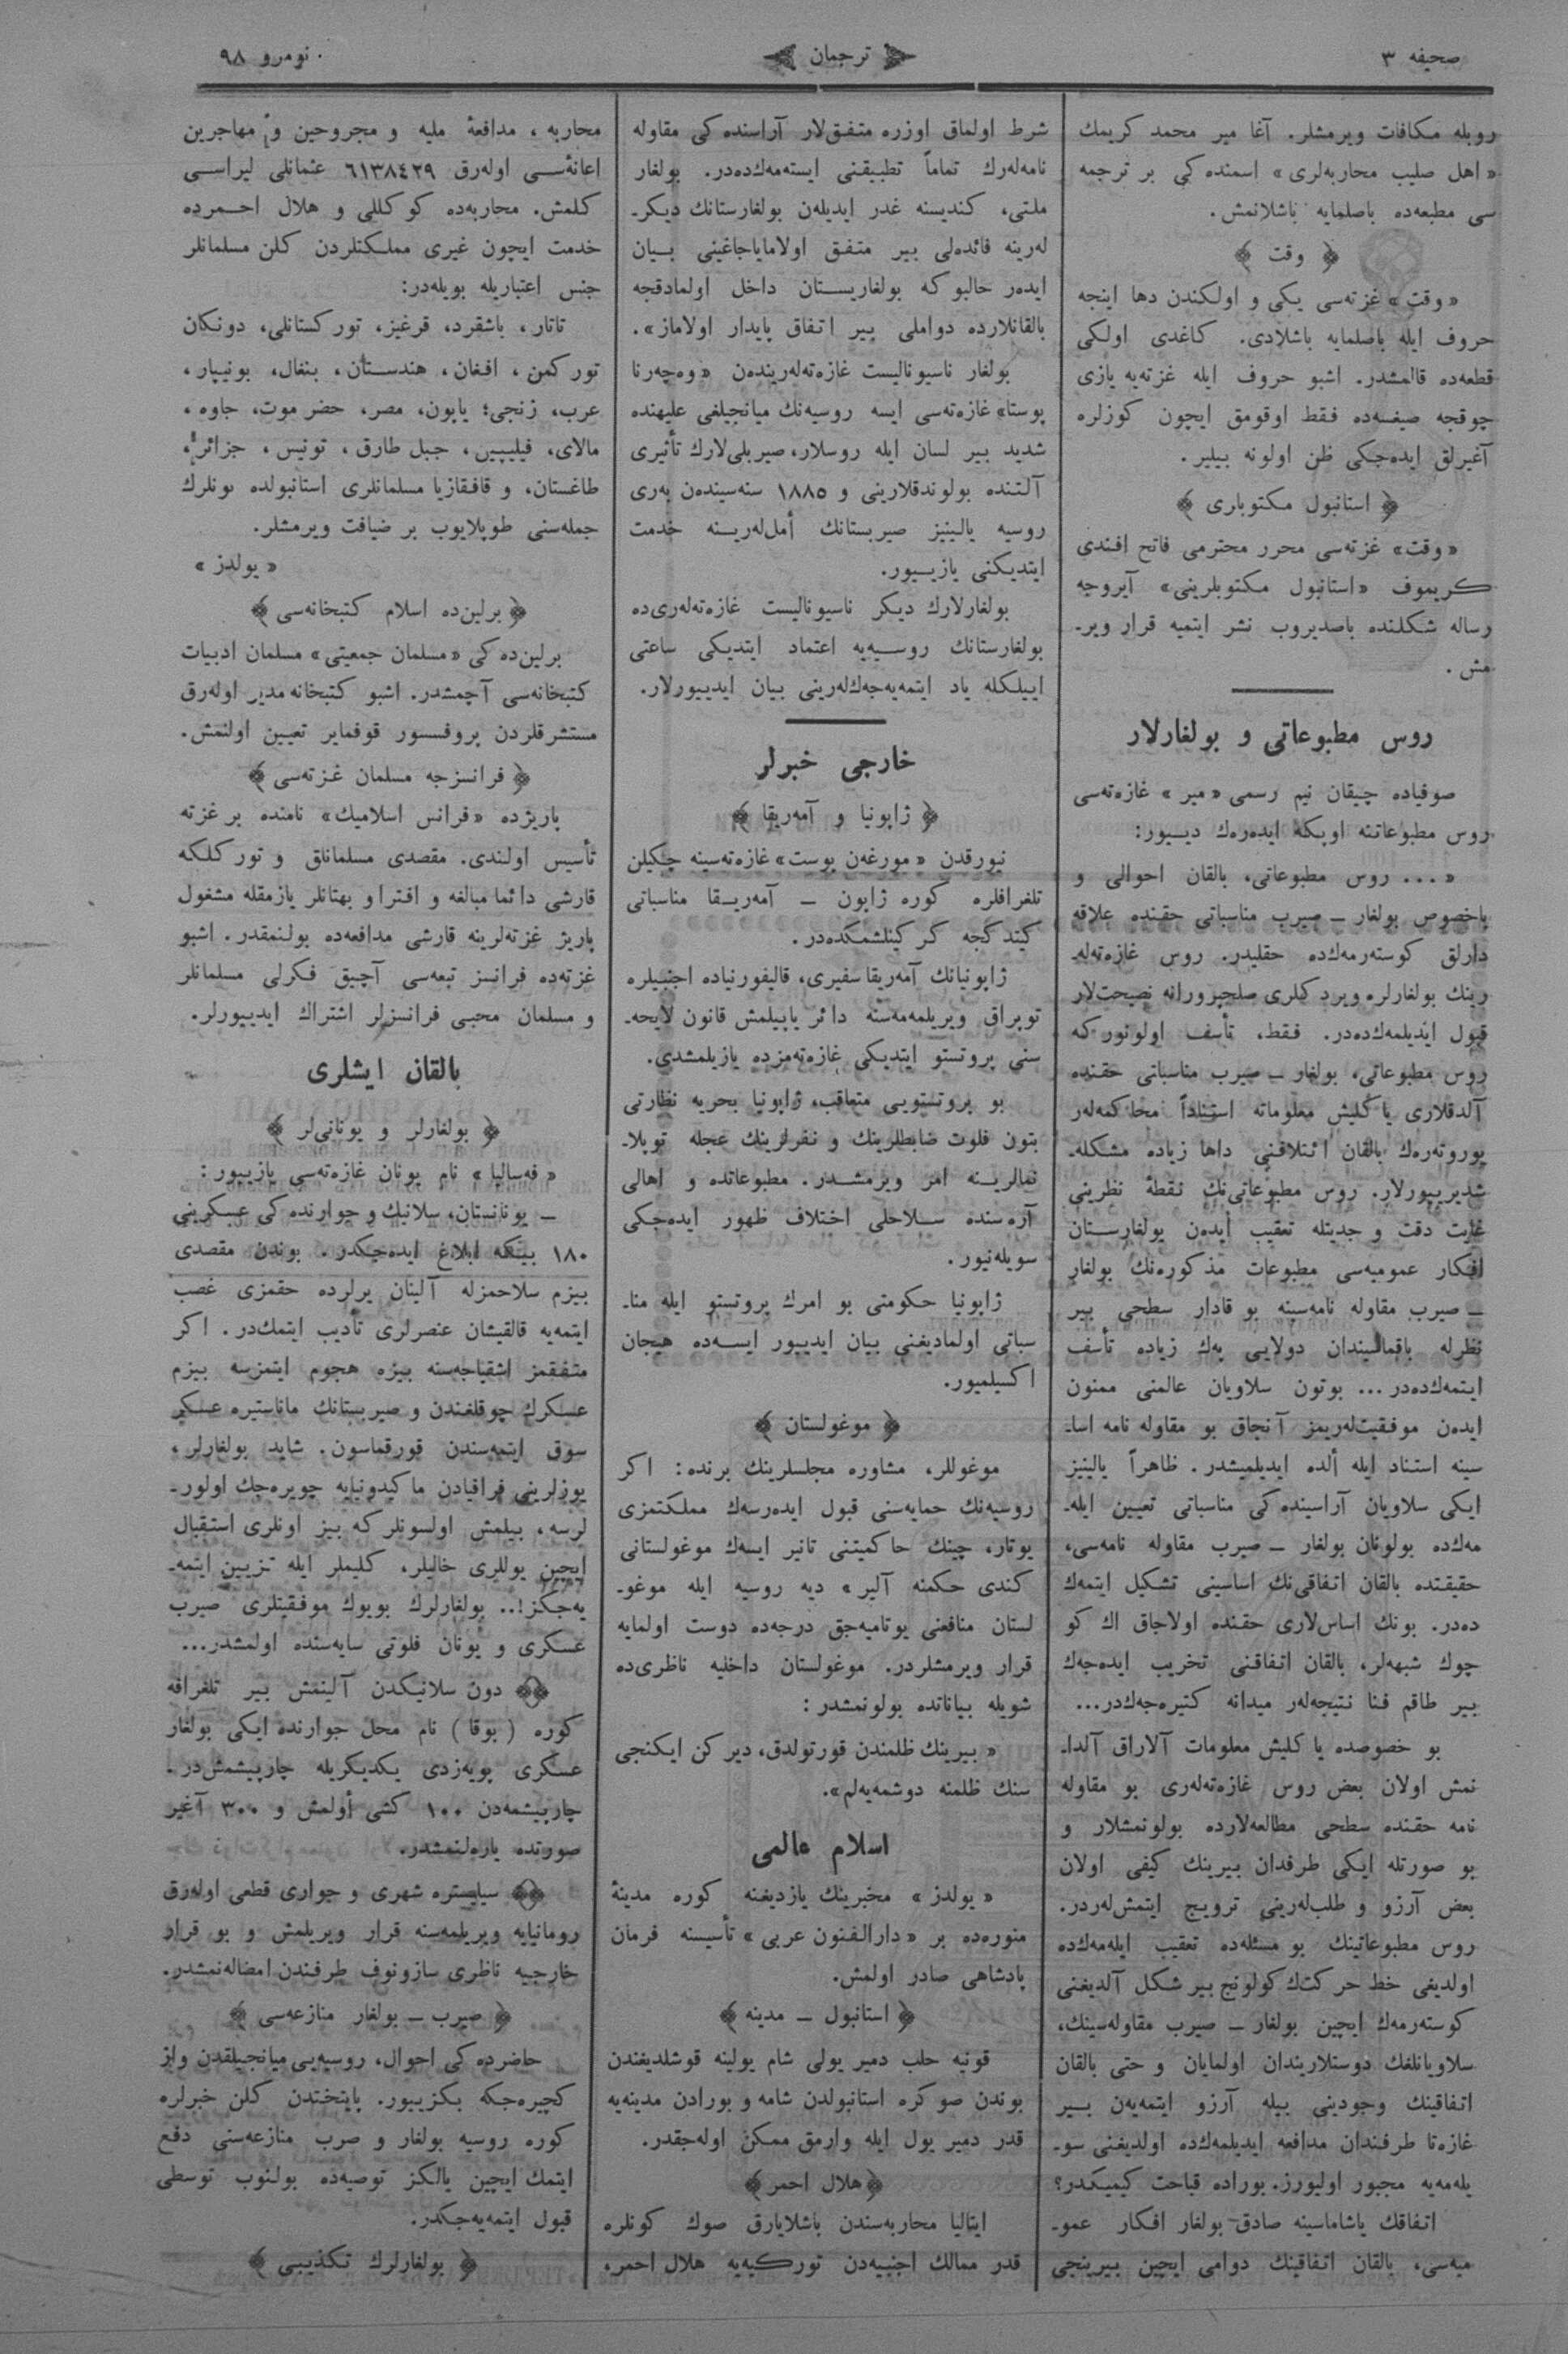 صحیفه ۳
ترجمان
نومرو ۹۸
روبله مكافات ویرمشلر. آغا میر محمد كریمك
«اهل صلیب محاربه‌لری» اسمنده كی بر ترجمه
سی مطبعه‌ده باصلمایه باشلانمش.
﴿ وقت ﴾
«وقت» غزته‌سی یكی و اولكندن دها اینجه
حروف ایله باصلمایه باشلادی. كاغدی اولكی
قطعه‌ده قالمشدر. اشبو حروف ایله غزته‌یه یازی
چوقجه صیغسه‌ده فقط اوقومق ایچون كوزلره
آغیرلق ایده‌جكی ظن اولونه بیلیر.
﴿ استانبول مكتوباری ﴾
«وقت» غزته‌سی محرر محترمی فاتح افندی
كریموف «استانبول مكتوبلرینی» آیروجه
رساله شكلنده باصدیروب نشر ایتمیه قرار ویر-
مش.
روس مطبوعاتی و بولغارلار
صوفیاده چیقان نیم رسمی «میر» غازه‌ته‌سی
روس مطبوعاتنه اوپكه ایده‌رەك دیـیور:
«... روس مطبوعاتی، بالقان احوالی و
باخصوص بولغار ــ صیرب مناسباتی حقنده علاقه
دارلق كوسته‌رمه‌كده حقلیدر. روس غازه‌ته‌له-
رینك بولغارلره ویردكلری صلحپرورانه نصیحت‌لار
قبول ایدیلمه‌كده‌در. فقط، تأسف اولونور كه
روس مطبوعاتی، بولغار ــ صیرب مناسباتی حقنده
آلدقلاری یاكلیش معلوماته استناداً محاكمه‌لەر
یوروته‌رەك بالقان ائتلافنی داها زیاده مشكله-
شدیرییورلار. روس مطبوعاتی‌نك نقطهٔ نظرینی
غایت دقت و جدیتله تعقیب ایدەن بولغارستان
افكار عمومیه‌سی مطبوعات مذكورەنك بولغار
ــ صیرب مقاوله نامه‌سینه بو قادار سطحی بیر
نظرله باقماسیندان دولایی پەك زیاده تأسف
ایتمه‌كده‌در... بوتون سلاویان عالمنی ممنون
ایدەن موفقیت‌لەریمز آنجاق بو مقاوله نامه اسا-
سینه استناد ایله ألده ایدیلمیشدر. ظاهراً یالینیز
ایكی سلاویان آراسینده كی مناسباتی تعیین ایله-
مه‌كده بولونان بولغار ــ صیرب مقاوله نامه‌سی،
حقیقتده بالقان اتفاقی‌نك اساسینی تشكیل ایتمه‌ك
ده‌در. بونك اساس‌لاری حقنده اولاجاق اك كو
چوك شبهه‌لر، بالقان اتفاقنی تخریب ایده‌جه‌ك
بیر طاقم فنا نتیجه‌لەر میدانه كتیره‌جه‌كدر...
بو خصوصده یاكلیش معلومات آلاراق آلدا-
نمش اولان بعض روس غازه‌ته‌لەری بو مقاوله
نامه حقنده سطحی مطالعه‌لارده بولونمشلار و
بو صورتله ایكی طرفدان بیرینك كیفی اولان
بعض آرزو و طلب‌لەرینی ترویج ایتمش‌لەردر.
روس مطبوعاتینك بو مسئله‌ده تعقیب ایله‌مه‌كده
اولدیغی خط حركتك كولونج بیر شكل آلدیغنی
كوسته‌رمه‌ك ایچین بولغار ــ صیرب مقاوله‌سینك،
سلاویانلغك دوستلاریندان اولمایان و حتی بالقان
اتفاقینك وجودینی بیله آرزو ایتمه‌یەن بیر
غازه‌تا طرفندان مدافعه ایدیلمه‌كده اولدیغنی سو-
یله‌مه‌یه مجبور اولیورز. بوراده قباحت كیمیكدر؟
اتفاقك یاشاماسینه صادق بولغار افكار عمو-
میه‌سی، بالقان اتفاقینك دوامی ایچین بیرینجی
شرط اولماق اوزره متفق‌لار آراسنده كی مقاوله
نامه‌لەرك تماماً تطبیقنی ایسته‌مه‌كده‌در. بولغار
ملتی، كندیسنه غدر ایدیلەن بولغارستانك دیكر-
لەرینه فائده‌لی بیر متفق اولامایاجاغینی بیان
ایدەر حالبو كه بولغاریستان داخل اولمادقجه
بالقانلارده دواملی بیر اتفاق پایدار اولاماز».
بولغار ناسیونالیست غازه‌ته‌لەریندەن «وه‌چه‌رنا
پوستا» غازه‌ته‌سی ایسه روسیه‌نك میانجیلغی علیهنده
شدید بیر لسان ایله روسلار، صیربلی‌لارك تأثیری
آلتنده بولوندقلارینی و ۱۸۸۵ سنه‌سیندەن بەری
روسیه یالینیز صیربستانك أمل‌لەرینه خدمت
ایتدیكنی یازییور.
بولغارلارك دیكر ناسیونالیست غازه‌ته‌لەری‌ده
بولغارستانك روسیه‌یه اعتماد ایتدیكی ساعتی
اییلكله یاد ایتمه‌یه‌جه‌كلەرینی بیان ایدییورلار.
خارجی خبرلر
﴿ ژاپونیا و آمه‌ریقا ﴾
نیورقدن «مورغه‌ن پوست» غازه‌ته‌سینه چكیلن
تلغرافلره كوره ژاپون ــ آمه‌ریقا مناسباتی
كیتدكجه كركینلشمكده‌در.
ژاپونیانك آمه‌ریقا سفیری، قالیفورنیاده اجنبیلره
توپراق ویریلمه‌مه‌سنه دائر یاپیلمش قانون لایحه-
سنی پروتستو ایتدیكی غازه‌ته‌مزده یازیلمشدی.
بو پروتستویی متعاقب، ژاپونیا بحریه نظارتی
بتون فلوت ضابطلرینك و نفرلرینك عجله توپلا-
نمالرینه امر ویرمشدر. مطبوعاتده و اهالی
آره‌سنده سلاحلی اختلاف ظهور ایده‌جكی
سویله‌نیور.
ژاپونیا حكومتی بو امرك پروتستو ایله منا-
سباتی اولمادیغنی بیان ایدییور ایسه‌ده هیجان
اكسیلمیور.
﴿ موغولستان ﴾
موغوللر، مشاوره مجلسلرینك برنده: اكر
روسیه‌نك حمایه‌سنی قبول ایده‌رسه‌ك مملكتمزی
یوتار، چینك حاكمیتنی تانیر ایسه‌ك موغولستانی
كندی حكمنه آلیر» دیه روسیه ایله موغو-
لستان منافعنی یوتامیه‌جق درجه‌ده دوست اولمایه
قرار ویرمشلردر. موغولستان داخلیه ناظری‌ده
شویله بیاناتده بولونمشدر:
«بیرینك ظلمندن قورتولدق، دیر كن ایكنجی
سنك ظلمنه دوشمه‌یه‌لم».
اسلام عالمی
«یولدز» مخبرینك یازدیغنه كوره مدینهٔ
منوره‌ده بر «دارالفنون عربی» تأسیسنه فرمان
پادشاهی صادر اولمش.
﴿ استانبول ــ مدینه ﴾
قونیه حلب دمیر یولی شام یولینه قوشلدیغندن
بوندن صوكره استانبولدن شامه و بورادن مدینه‌یه
قدر دمیر یول ایله وارمق ممكن اوله‌جقدر.
﴿هلال احمر﴾
ایتالیا محاربه‌سندن باشلایارق صوك كونلره
قدر ممالك اجنبیه‌دن توركیه‌یه هلال احمر،
محاربه، مدافعهٔ ملیه و مجروحین و مهاجرین
اعانه‌سی اوله‌رق ٦۱۳۸٤۲۹ عثمانلی لیراسی
كلمش. محاربه‌ده كوكللی و هلال احمرده
خدمت ایچون غیری مملكتلردن كلن مسلمانلر
جنس اعتباریله بویله‌در:
تاتار، باشقرد، قرغیز، توركستانلی، دونكان
توركمن، افغان، هندستان، بنغال، بونیپار،
عرب، زنجی؛ یاپون، مصر، حضر موت، جاوه،
مالای، فیلیپین، جبل طارق، تونیس، جزائر،
طاغستان، و قافقازیا مسلمانلری استانبولده بونلرك
جمله‌سنی طوپلایوب بر ضیافت ویرمشلر.
«یولدز»
﴿ برلین‌ده اسلام كتبخانه‌سی ﴾
برلین‌ده كی «مسلمان جمعیتی» مسلمان ادبیات
كتبخانه‌سی آچمشدر. اشبو كتبخانه مدیر اوله‌رق
مستشرقلردن پروفسسور قوفمایر تعیین اولنمش.
﴿ فرانسزجه مسلمان غزته‌سی ﴾
پاریژده «فرانس اسلامیك» نامنده بر غزته
تأسیس اولندی. مقصدی مسلمانلق و توركلكه
قارشی دائما مبالغه و افترا و بهتانلر یازمقله مشغول
پاریژ غزته‌لرینه قارشی مدافعه‌ده بولنمقدر. اشبو
غزته‌ده فرانسز تبعه‌سی آچیق فكرلی مسلمانلر
و مسلمان محبی فرانسزلر اشتراك ایدییورلر.
بالقان ایشلری
﴿ بولغارلر و یونانی‌لر ﴾
«فه‌سالیا» نام یونان غازه‌ته‌سی یازییور:
ــ یونانستان، سلانیك و جوارنده كی عسكرینی
۱۸۰ بیڭه ابلاغ ایده‌جكدر. بوندن مقصدی
بیزم سلاحمزله آلینان یرلرده حقمزی غصب
ایتمه‌یه قالقیشان عنصرلری تأدیب ایتمك‌در. اكر
متفقمز اشقیاجه‌سنه بیزه هجوم ایتمزسه بیزم
عسكرك چوقلغندن و صیربستانك ماناستیره عسكر
سوق ایتمه‌سندن قورقماسون. شاید بولغارلر،
یوزلرینی فراقیادن ماكیدونیایه چویره‌جك اولور-
لرسه، بیلمش اولسونلر كه بیز اونلری استقبال
ایچین یوللری خالیلر، كلیملر ایله تزیین ایتمه-
یه‌جكز!.. بولغارلرك بویوك موفقیتلری صیرب
عسكری و یونان فلوتی سایه‌سنده اولمشدر...
دون سلانیكدن آلینمش بیر تلغرافه
كوره (بوقا) نام محل جوارنده ایكی بولغار
عسكری پویه‌زدی یكدیكریله چارپیشمش‌در.
چارپیشمه‌دن ۱۰۰ كشی أولمش و ۳۰۰ آغیر
صورتده یاره‌لنمشدر.
سیلیستره شهری و جواری قطعی اوله‌رق
رومانیایه ویریلمه‌سنه قرار ویریلمش و بو قرار
خارجیه ناظری سازونوف طرفندن امضاله‌نمشدر.
﴿ صیرب ــ بولغار منازعه‌سی ﴾
حاضرده كی احوال، روسیه‌یی میانجیلقدن واز
كچیره‌جكه بكزییور. پایتختدن كلن خبرلره
كوره روسیه بولغار و صرب منازعه‌سنی دفع
ایتمك ایچین یالكز توصیه‌ده بولنوب توسطی
قبول ایتمه‌یه‌جكدر.
﴿ بولغارلرك تكذیبی ﴾